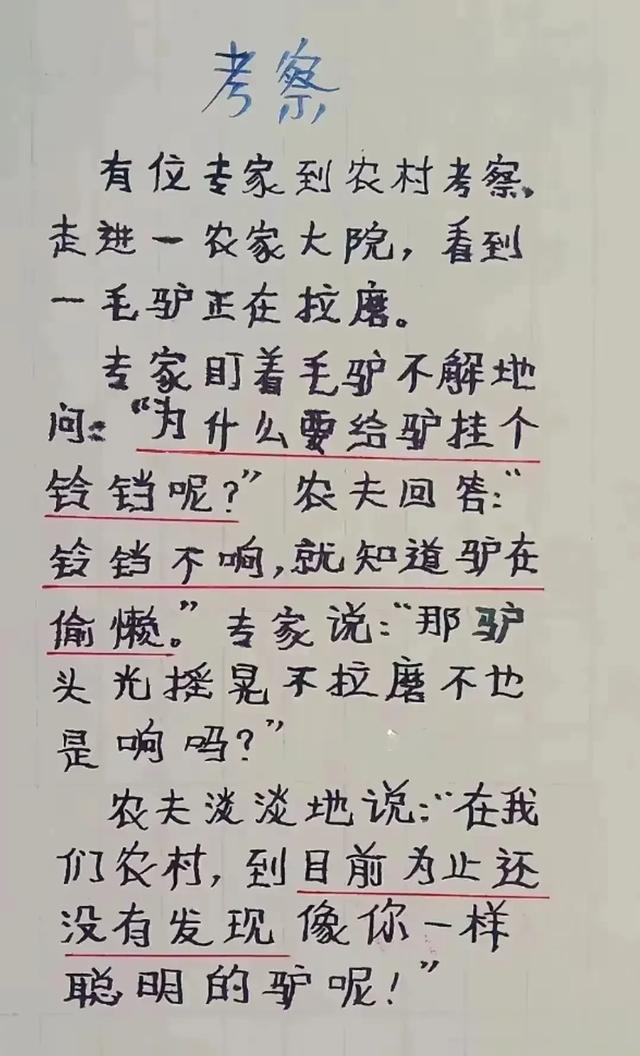 考察
有位专家到农村考察,
走进一农家大院，看到
一毛驴正在拉磨。
专家盯着毛驴不解地
问:“为什么要给驴挂个
铃铛呢?”农夫回答:“
铃铛不响,就知道驴在
偷懒。”专家说:“那驴
头光摇晃不拉磨不也
是响吗?”
农夫淡淡地说:“在我
们农村,到目前为止还
没有发现像你一样
聪明的驴呢!”